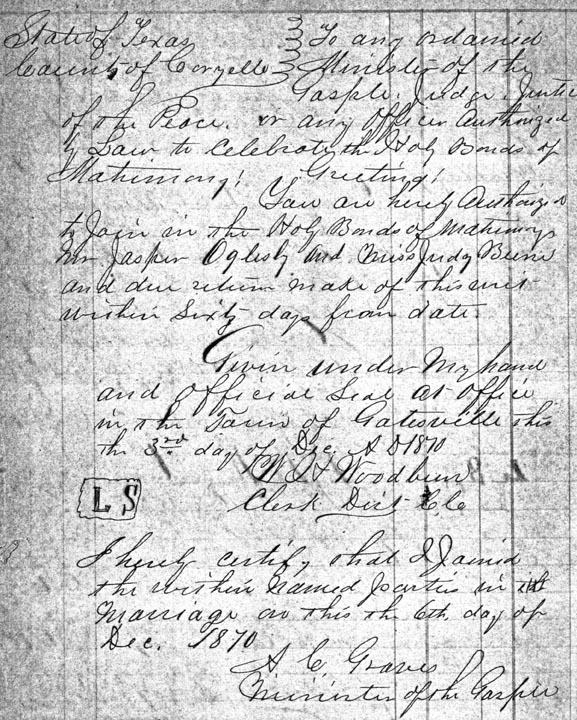 State of Texas } To any ordained
County of Coryelle } Minister of the
Gosple. Judge. Justice
of the Peace. or any Officer Authorized
by Law to Celebrate the Holy Bonds of
Matrimony! Greeting!
You are hereby Authorized
to Join in the Holy Bonds of Matrimony
Mr Jasper Oglesby and Miss Judy Beene
and due return make of this writ
within Sixty days from date.
Givin under My hand
and official Seal at office
in the Town of Gatesville this
the 3rd day of Dec. A D 1870
Woodburn
L S
Clerk Dist C. C.
I hereby certify that I Joined
the within named parties in
Marriage on this the 6th day of
Dec. 1870
A C Graves
Minister of the Gosple